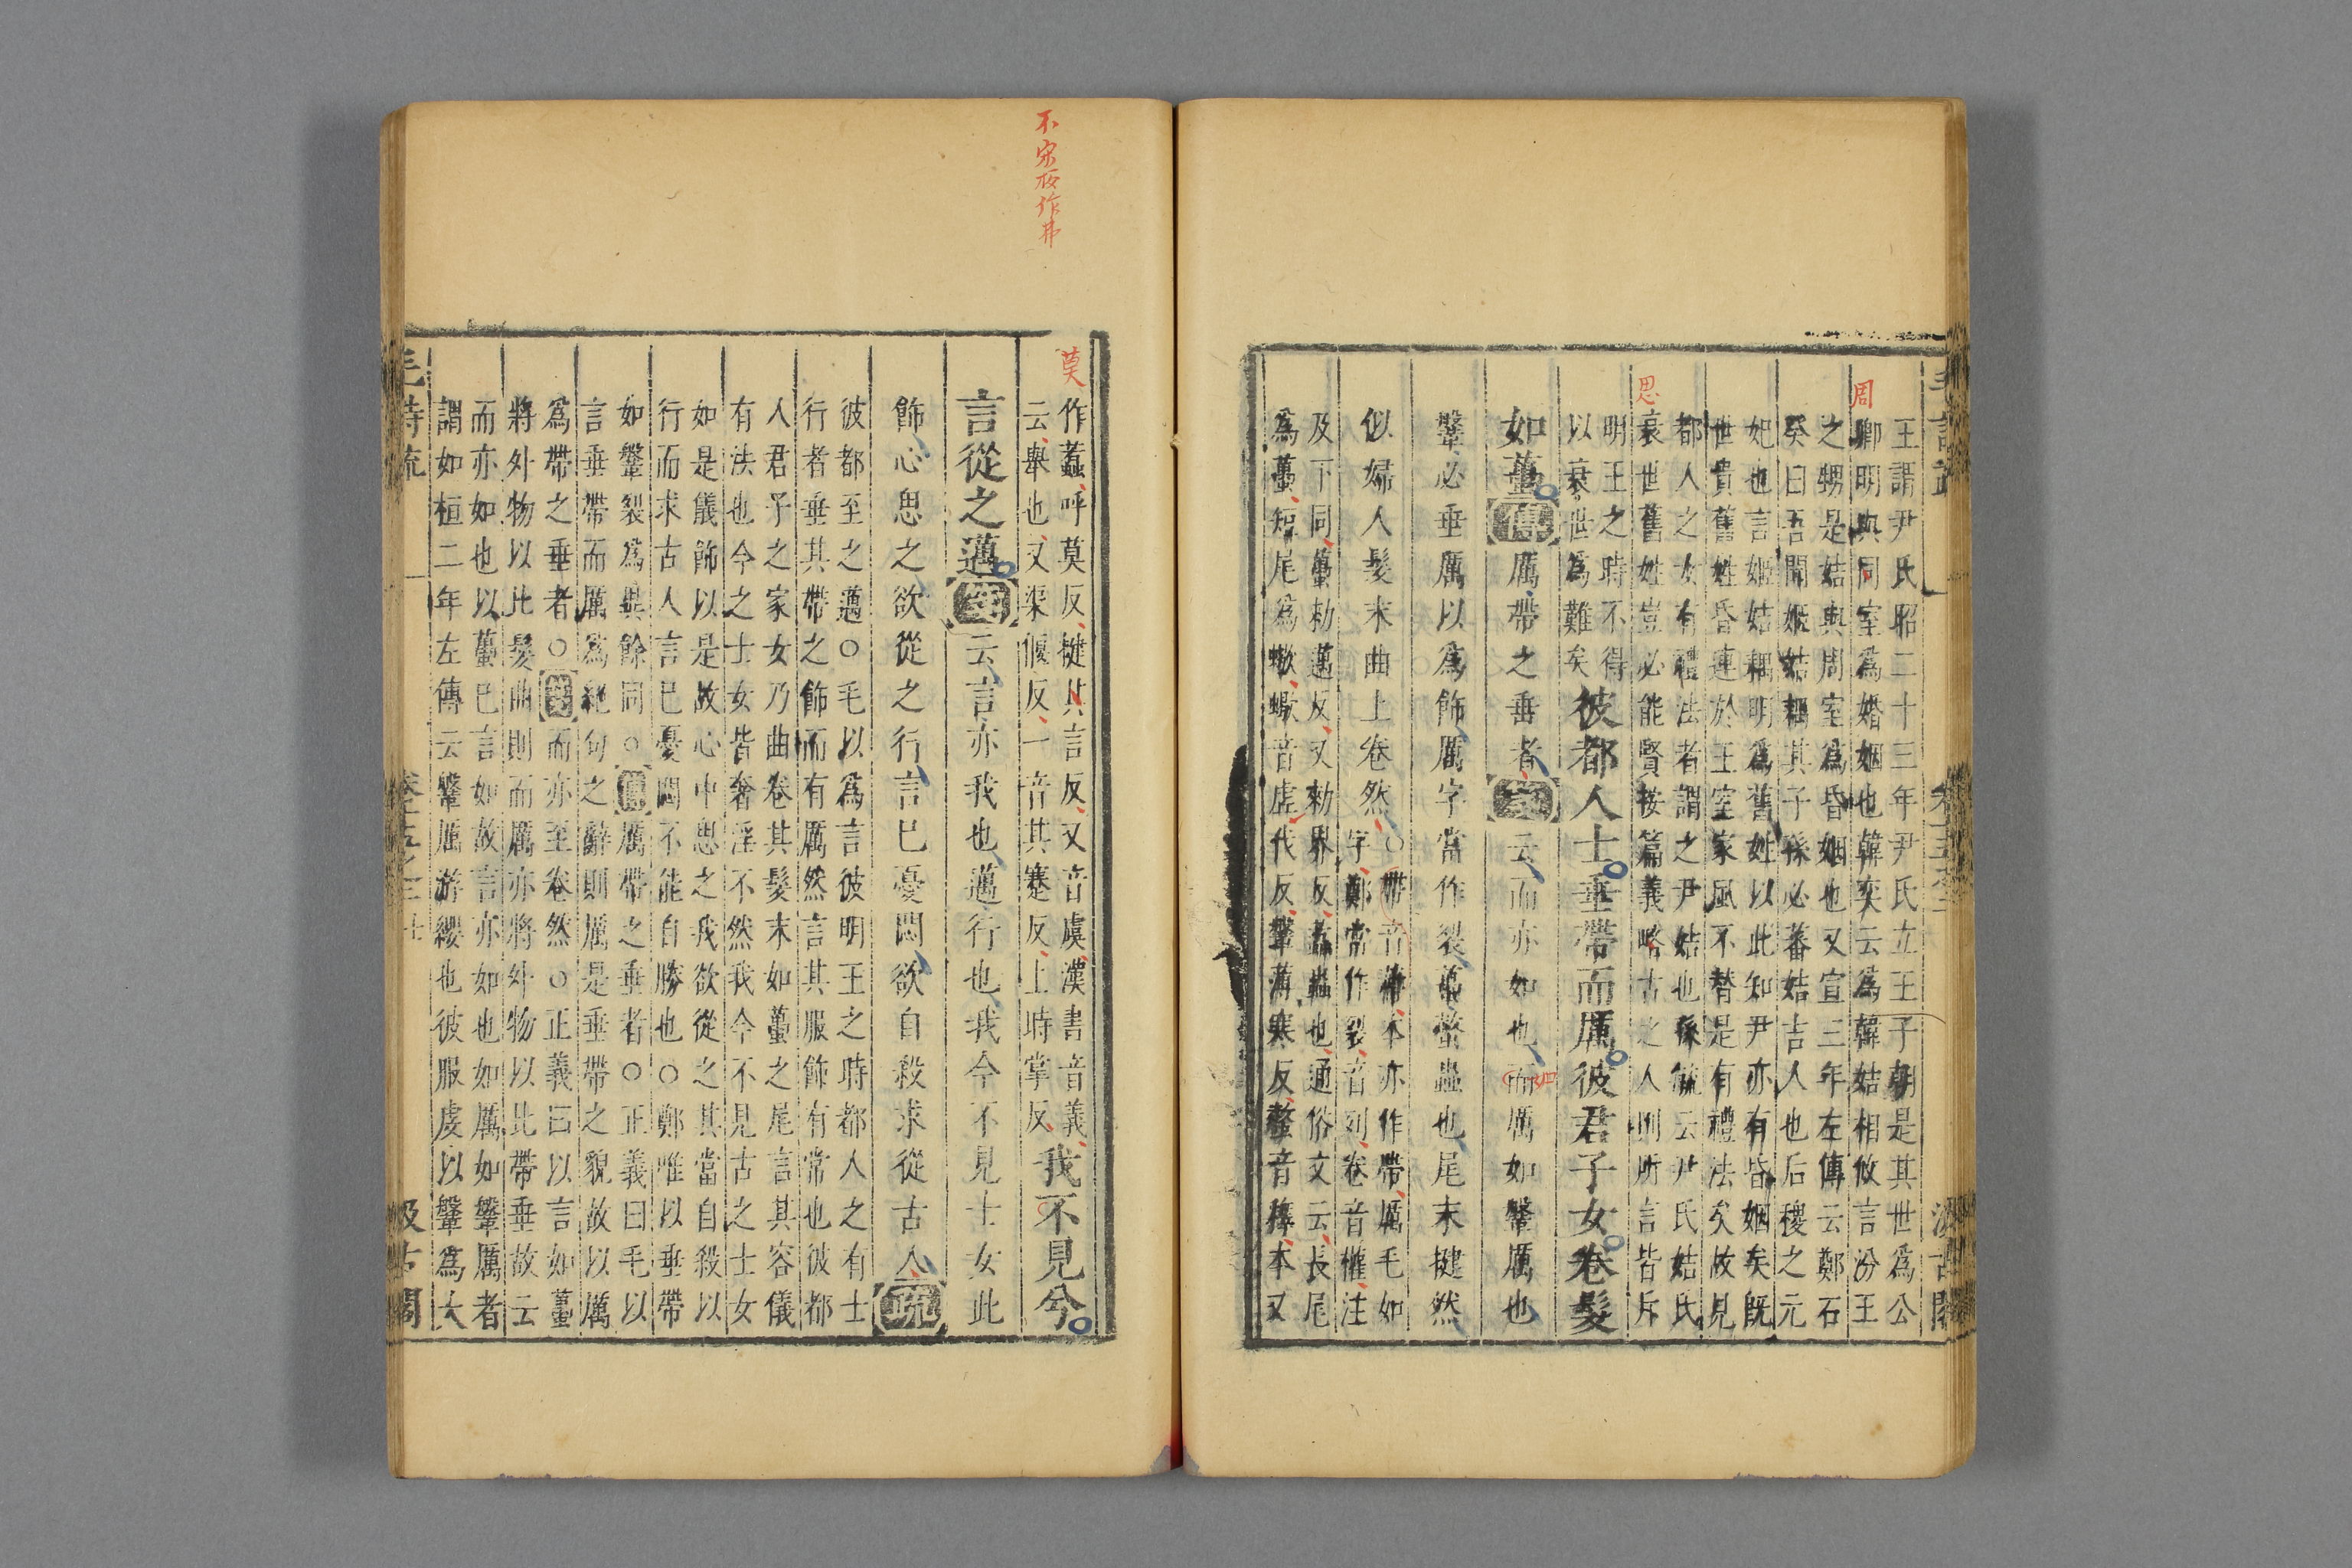 王謂尹氏昭二十三年尹氏立王子朝是其世爲公
周
卿明與同室爲婚姻也韓奕云爲韓姞相攸言汾王
之甥是姞與周室爲昏姻也又宣三年左傳云鄭石
癸曰吾聞姬姞耦其子孫必蕃姞吉人也后稷之元
妃也言姬姞耦明爲舊姓以此知尹亦有昏姻矣旣
世貴舊姓昏連於王室家風不替是有禮法矣故見
都人之女有禮法者謂之尹姞也孫毓云尹氏姞氏
思
衰世舊姓豈必能賢按篇義略古之人則所言皆斥
明王之時不得
以衰世爲難矣
彼都人士垂帶而厲彼君子女卷髮
如蠆傳厲帶之垂者箋云而亦如也而厲如鞶厲也
如
鞶必垂厲以爲飾厲字當作裂蠆螫蟲也尾末揵然
似婦人髮末曲上卷然○
帶音蔕本亦作帶厲毛如
字鄭當作裂音列卷音權注
及下同蠆勑邁反又勑界反蠚蟲也通俗文云長尾
爲蠆短尾爲蠍蠍音虛代反鞶薄寒反螫音釋本又
不宋板作弗
莫
作蠚呼莫反揵其言反又音虔漢書音義
云舉也又渠偃反一音其蹇反上時掌反
我不見兮
言從之邁箋云言亦我也邁行也我今不見士女此
飾心思之欲從之行言已憂悶欲自殺求從古人疏
彼都至之邁○毛以爲言彼明王之時都人之有士
行者垂其帶之飾而有厲然言其服飾有常也彼都
人君子之家女乃曲卷其髮末如蠆之尾言其容儀
有法也今之士女皆奢淫不然我今不見古之士女
如是儀飾以是故心中思之我欲從之其當自殺以
行而求古人言已憂悶不能自勝也○鄭唯以垂帶
如鞶裂爲異餘同○傳厲帶之垂者○正義曰毛以
言垂帶而厲爲絕句之辭則厲是垂帶之貌故以厲
爲帶之垂者○箋而亦至卷然○正義曰以言如蠆
將外物以比髮曲則而厲亦將外物以比帶垂故云
而亦如也以蠆巳言如故言亦如也如厲如鞶厲者
謂如桓二年左傳云鞶厲游纓也彼服虔以鞶爲大
毛詩疏
汲古閣